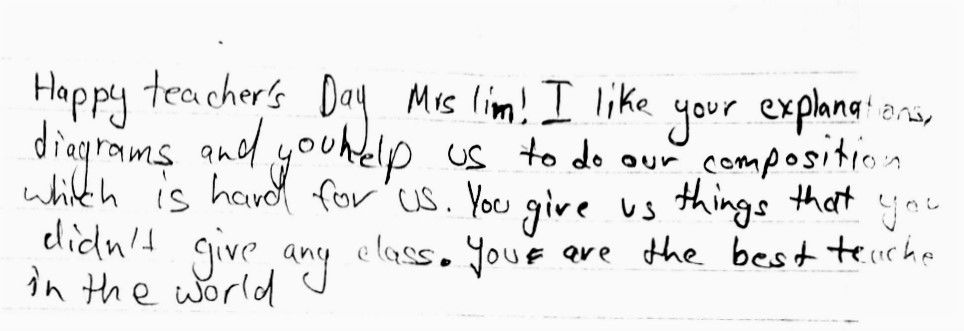 Happy teacher's Day Mrs lim! I like your explanations,
diagrams and you help us to do our composition
which is hard for us. You give us things that you
didn't give any class. Your are the best teache
in the world